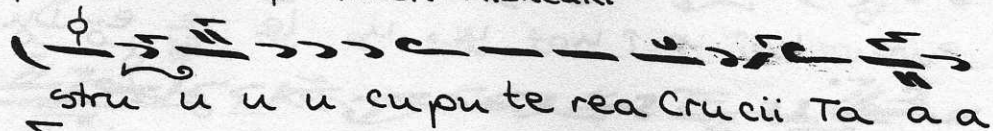 stru u u u cu pu te rea Crucii Ta a a